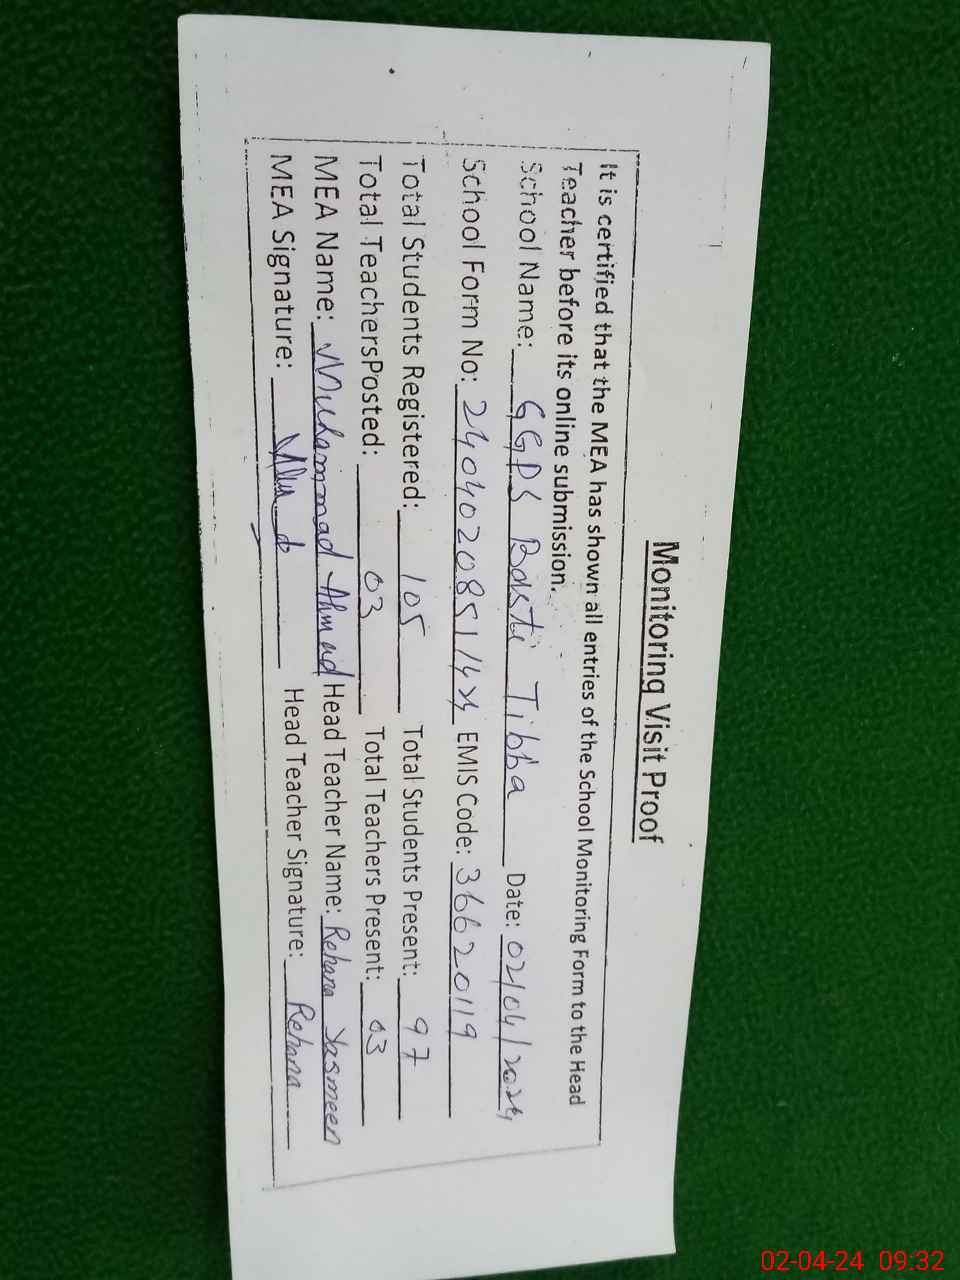 Monitoring Visit Proof
It is certified that the MEA has shown all entries of the School Monitoring Form to the Head
Teacher before its online submission.
School Name: GGPS Basti Tibba Date: 02/04/2024
School Form No: 24040208511424 EMIS Code: 36620119
Total Students Registered: 105 Total Students Present: 97
Total TeachersPosted: 03 Total Teachers Present: 03
MEA Name: Muhammad Ahmad Head Teacher Name: Rehana Yasmeen
MEA Signature: Head Teacher Signature: Rehana
02-04-24 09:32